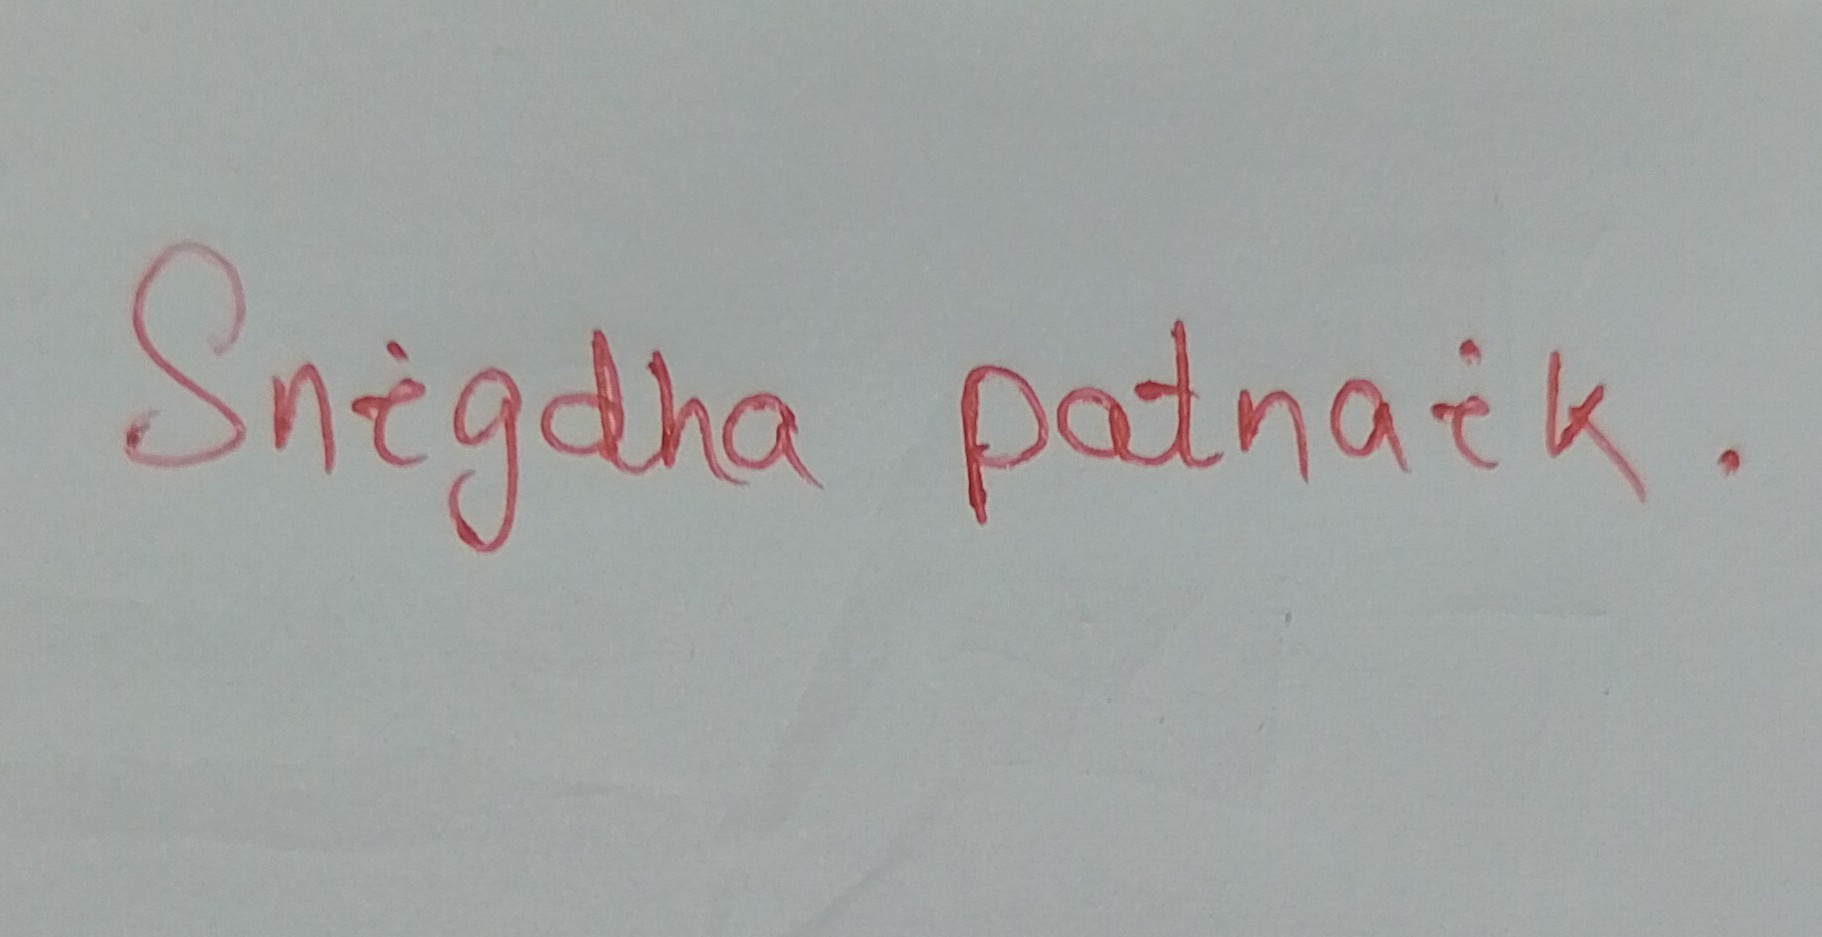 Snigdha patnaik.